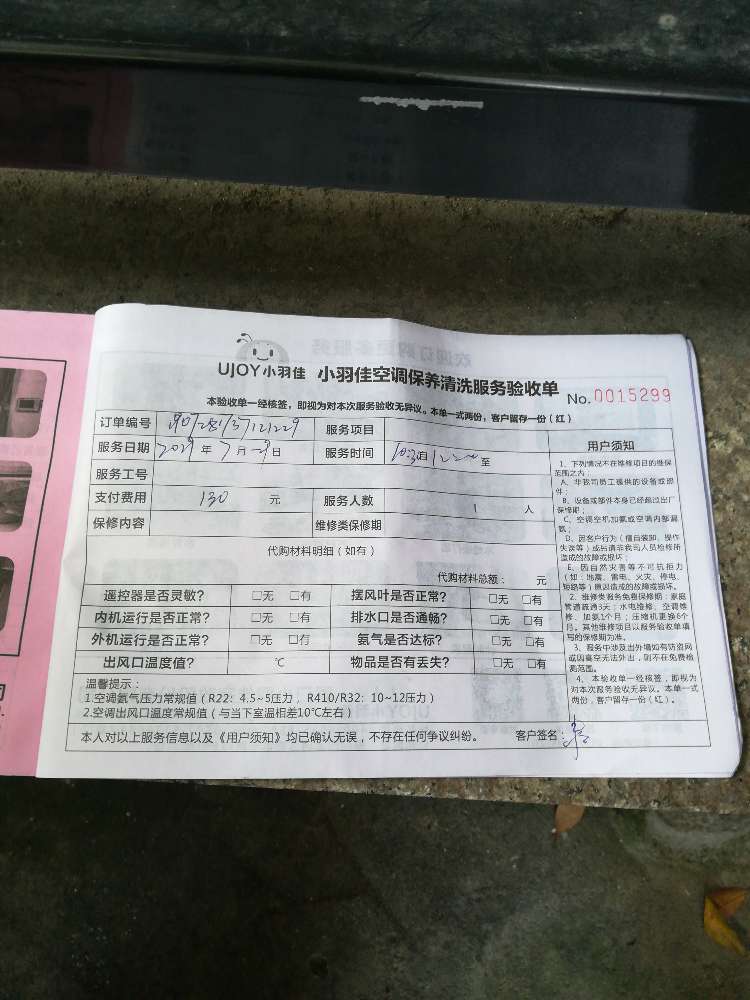 UJOY小羽佳 小羽佳空调保养清洗服务验收单 No.0015299
本验收单一经核签，即视为对本次服务验收无异议。本单一式两份，客户留存一份（红）
订单编号 服务项目
服务日期 年7月29日 服务时间 至
服务工号
支付费用 130 元 服务人数 1 人
保修内容 维修类保修期
代购材料明细（如有）
代购材料总额： 元
遥控器是否灵敏？ □无 □有 摆风叶是否正常？ □无 □有
内机运行是否正常？ □无 □有 排水口是否通畅？ □无 □有
外机运行是否正常？ □无 □有 氨气是否达标？ □无 □有
出风口温度值？ ℃ 物品是否有丢失？ □无 □有
温馨提示：
1.空调氨气压力常规值（R22：4.5~5压力，R410/R32：10~12压力）
2.空调出风口温度常规值（与当下室温相差10℃左右）
本人对以上服务信息以及《用户须知》均已确认无误，不存在任何争议纠纷。 客户签名：
用户须知
1、下列情况不在维修项目的维保
范围之内：
A、非我司员工提供的设备或部
件；
B、设备或部件本身已经超过出厂
保修期；
C、空调空机加氨或空调内部漏
氨；
D、因客户行为（擅自装卸、操作
失误等）或后请非我司人员检修所
造成的故障或损坏；
E、因自然灾害等不可抗拒力
（如：地震、雷电、火灾、停电、
短路等）原因造成的故障或损坏。
2、维修类服务免费保修期：家庭
管道疏通3天；水电维修、空调维
修、加氨1个月；压缩机更换6个
月。其他维修项目以服务验收单填
写的保修期为准。
3、服务中涉及出外墙如有防盗网
或因高空无法外出，则不在免费检
高范围。
4、本验收单一经核签，即视为
对本次服务验收无异议。本单一式
两份，客户留存一份（红）。